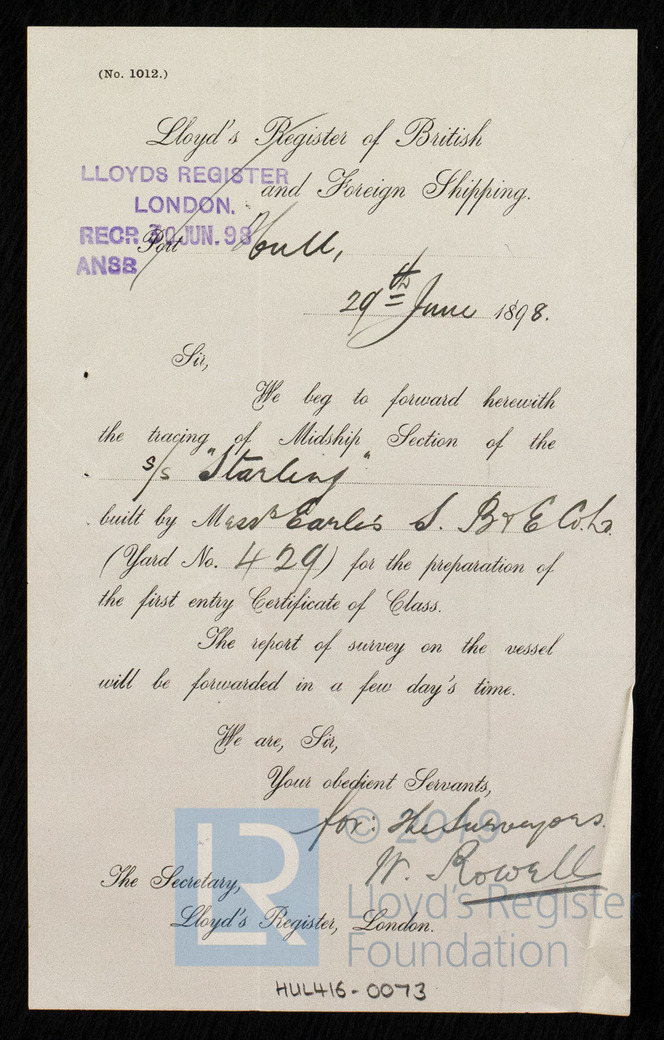 (No. 1012.)
Lloyd's Register of British
and Foreign Shipping.
LLOYDS REGISTER
LONDON.
RECR 30 JUN. 98
ANSB
Port Hull,
29th June 1898.
Sir,
We beg to forward herewith
the tracing of Midship Section of the
s/s "Starling"
built by Messrs Earle's S. B & E Co. Ld.
(Yard No. 429) for the preparation of
the first entry Certificate of Class.
The report of survey on the vessel
will be forwarded in a few day's time.
We are, Sir,
Your obedient Servants,
for: The Surveyors.
W. Rowell
The Secretary,
Lloyd's Register, London.
LR
© 2019
Lloyd's Register
Foundation
HUL416-0073